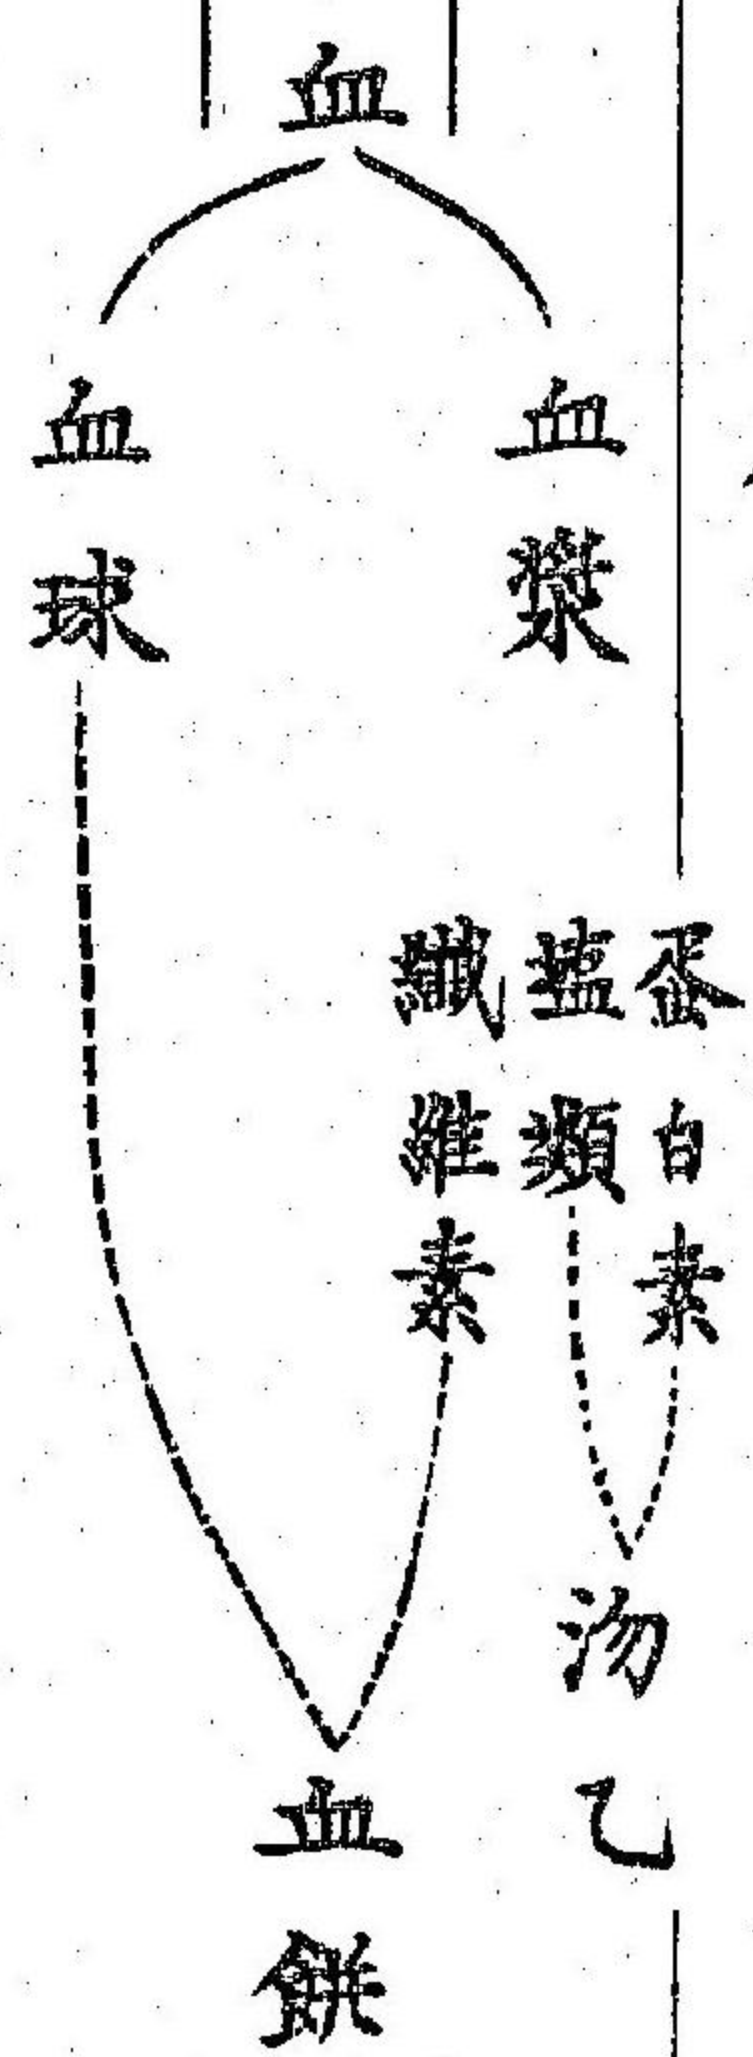 血
血漿
血球
蛋白素
塩類
纖維素
沕乙
血餅